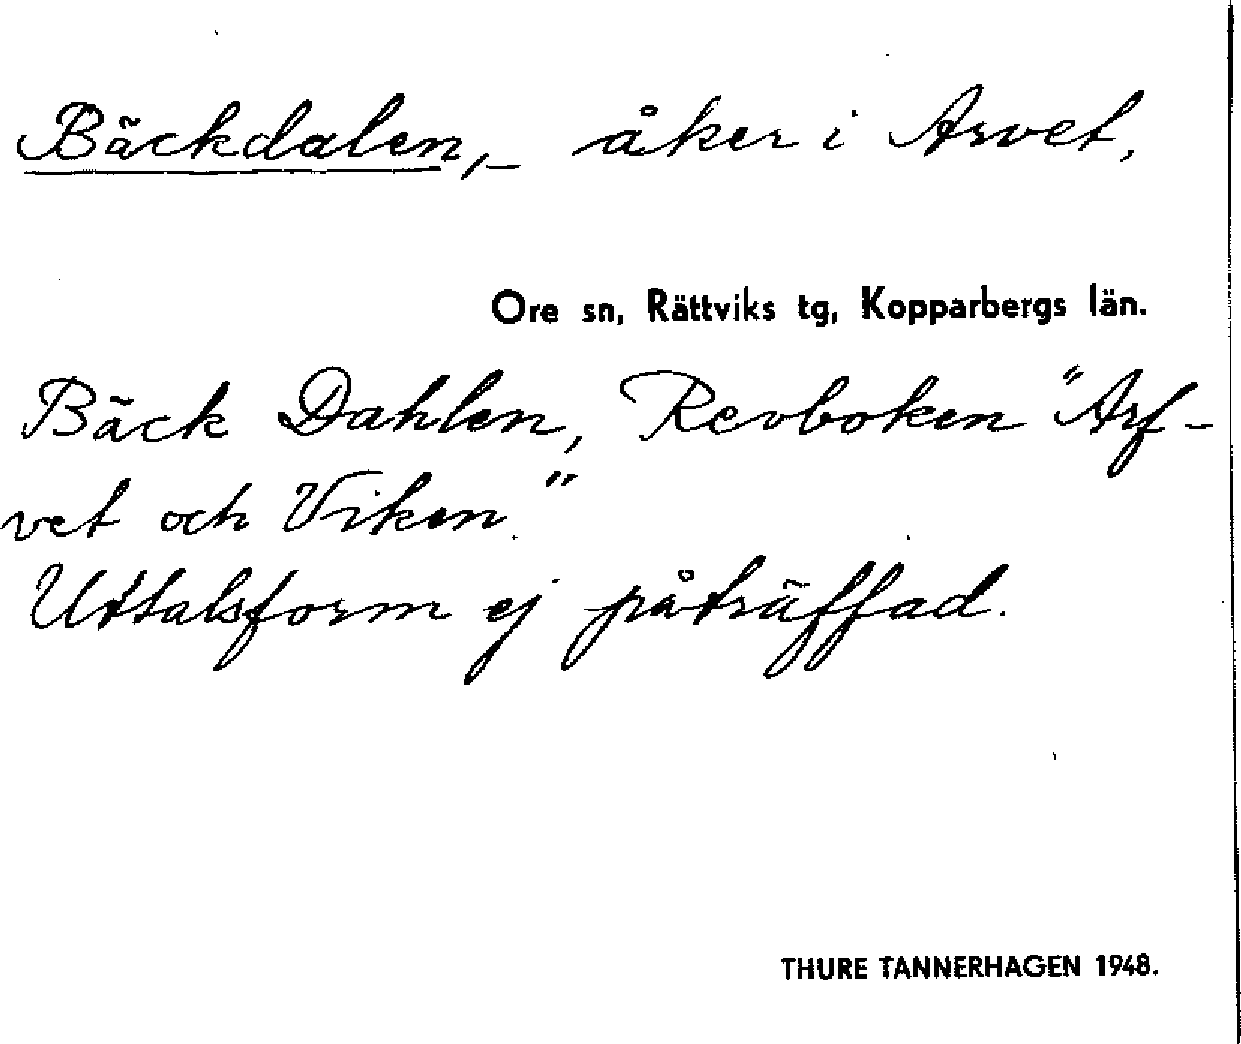 Bäckdalen,_ åker i Arvet,
Ore sn, Rättviks tg, Kopparbergs län.
Bäck Dahlen, Revboken "Arf-
vet och Viken."
Uttalsform ej påträffad.
THURE TANNERHAGEN 1948.